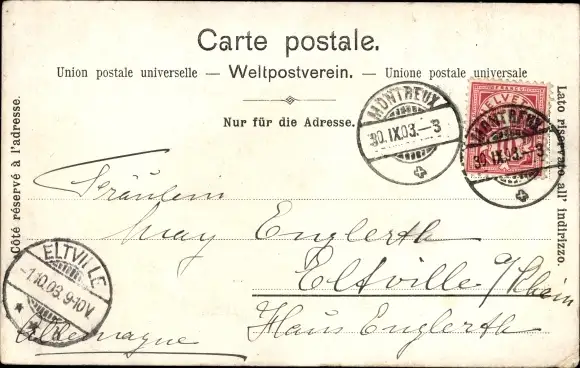 Carte postale.
Union postale universelle — Weltpostverein. — Unione postale universale
Nur für die Adresse.
Côté réservé à l'adresse.
Lato riservato all' indirizzo.
MONTREUX
30.IX.03.–3
FRANCO
HELVETIA
10
MONTREUX
30.IX.03.–3
Fräulein
May Englerth
Eltville a/Rhein
Haus Englerth
Allemagne
ELTVILLE
-1.10.03.9-10V